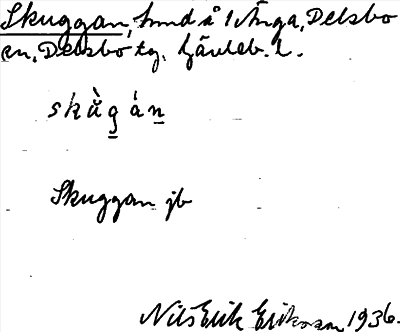 Skuggan, hmd å 1 Ånga, Delsbo
sn, Delsbo tg. Gävleb. l.
skùg̲án̲
Skuggan jb
Nils Erik Eriksson 1936.